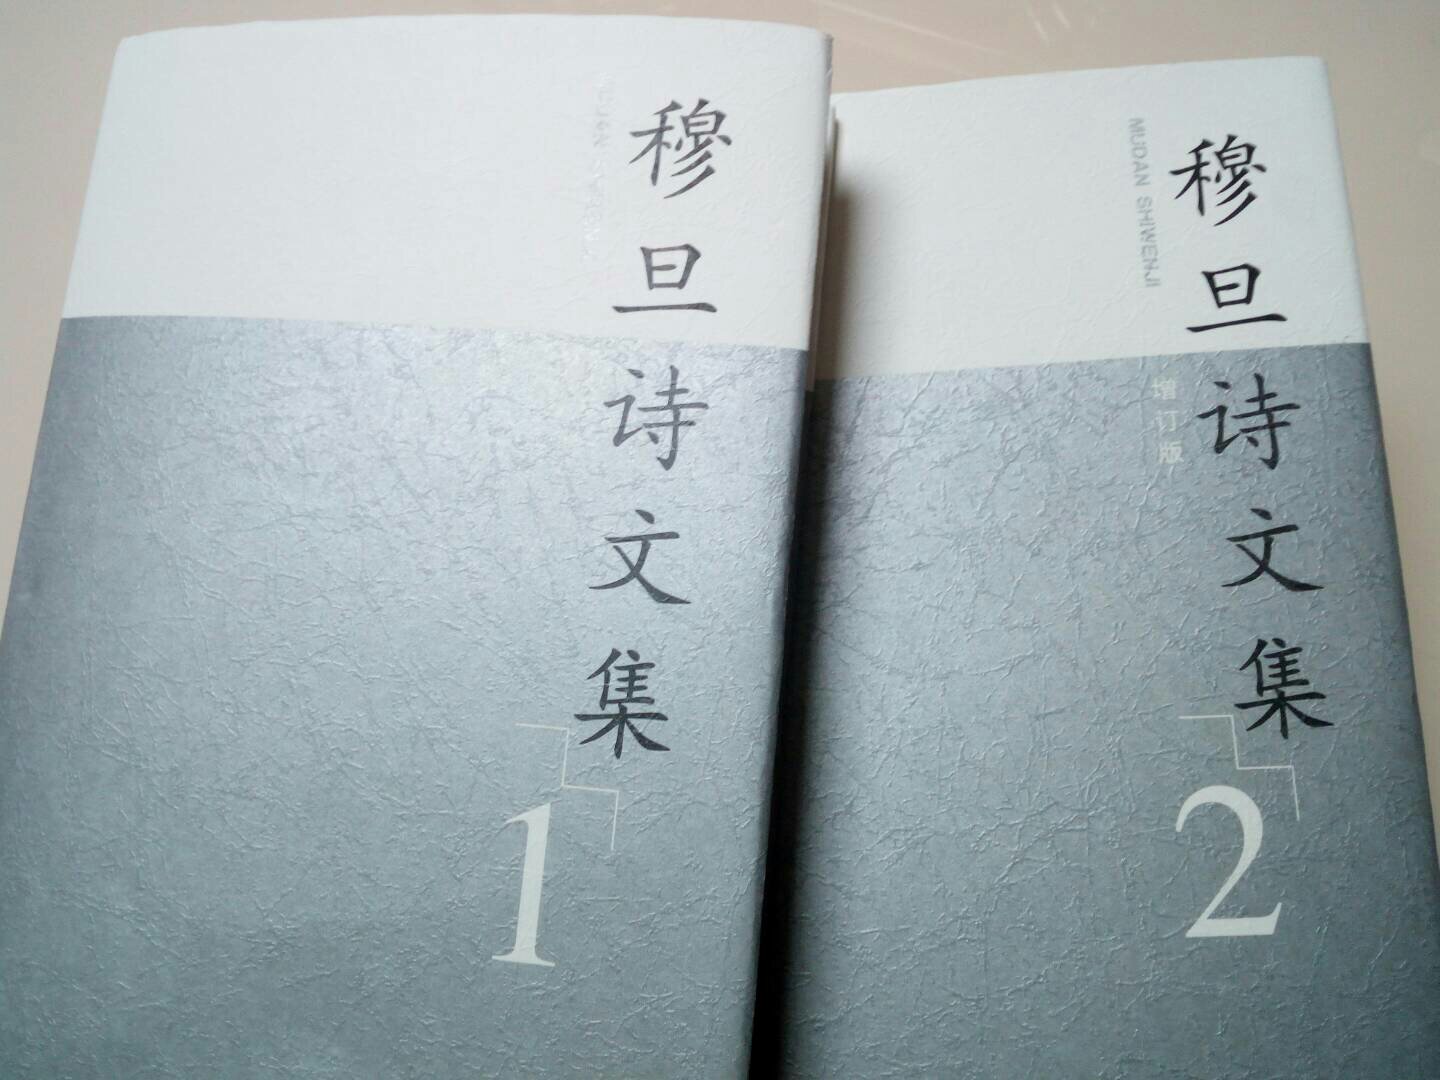 穆旦诗文集
1
穆旦诗文集
MUDAN SHIWENJI
增订版
2